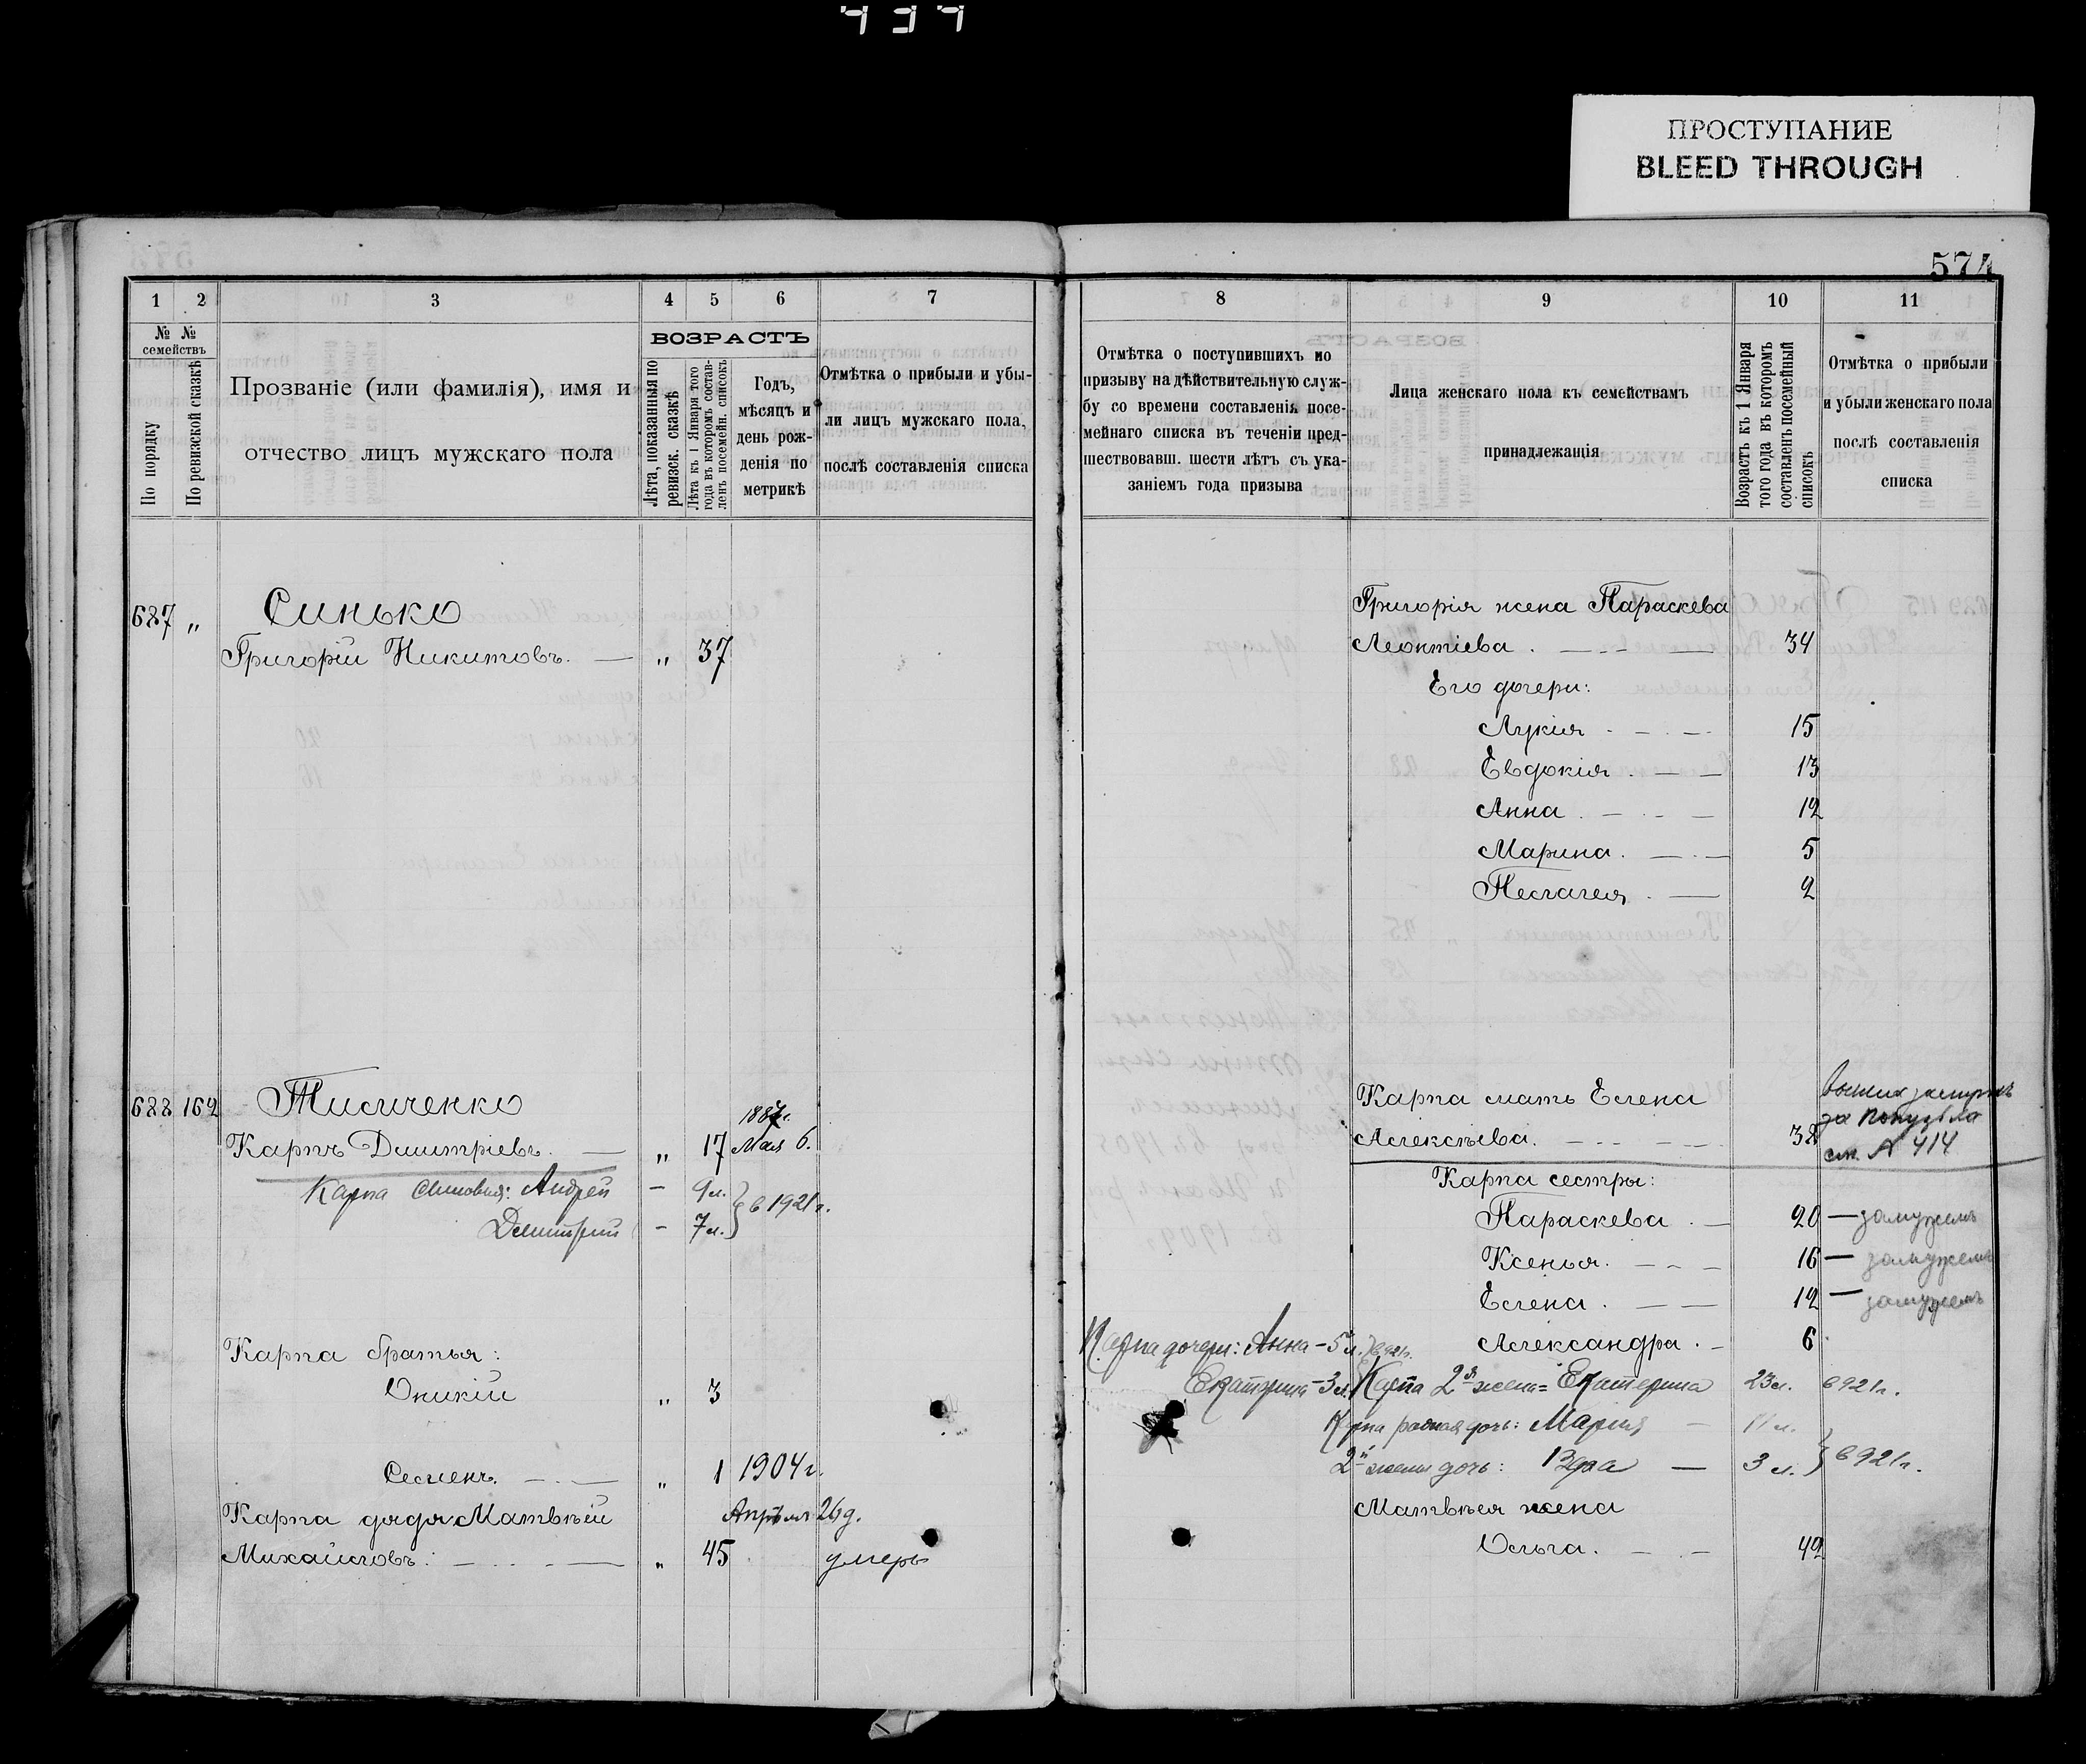 437
ПРОСТУПАНИЕ
BLEED THROUGH
574
1 2 3 4 5 6 7
№ № семействъ
По порядку
По ревизской сказкѣ
Прозваніе (или фамилія), имя и
отчество лицъ мужскаго пола
ВОЗРАСТЪ
Лѣта, показанныя по
ревизск. сказкѣ
Лѣта къ 1 Января того
года въ которомъ состав-
ленъ посемейн. списокъ
Годъ,
мѣсяцъ и
день рож-
денія по
метрикѣ
Отмѣтка о прибыли и убы-
ли лицъ мужскаго пола,
послѣ составленія списка
687 „ Синько
Григорій Никитовъ. — „ 37
688 162 Тисиченко
1887г.
Карпъ Дмитріевъ. — „ 17 Мая 6.
Карпа сыновья: Андрей — 9л. } в 1921г.
Дмитрий — 7л.
Карпа братья:
Оникій „ 3
Семенъ. „ 1 1904г.
Карпа дядя Матвѣй Апрѣля 26д.
Михайловъ. „ 45 умеръ
8 9 10 11
Отмѣтка о поступившихъ по
призыву на дѣйствительную служ-
бу со времени составленія посе-
мейнаго списка въ теченіи пред-
шествовавш. шести лѣтъ съ ука-
заніемъ года призыва
Лица женскаго пола къ семействамъ
принадлежащія
Возрастъ къ 1 Января
того года въ которомъ
составленъ посемейный
списокъ
Отмѣтка о прибыли
и убыли женскаго пола
послѣ составленія
списка
Григорія жена Параскева
Леонтіева. 34
Его дочери:
Лукія 15
Евдокія. 13
Анна. 12
Марина. 5
Пелагея. 2
Карпа мать Елена
Алексѣева. 38
за
см. № 414
Карпа сестры:
Параскева. 20 — замужемъ
Ксенья. 16 — замужемъ
Елена. 12 — замужемъ
Карпа дочери: Анна — 5 л. } в 921г. Александра. 6
Екатерина — 3 л. Карпа 2я жена = Екатерина 23 л. в 921г.
Карпа родная дочь: Мария — 11 л. } в 921г.
2й жены дочь: Вера — 3 л.
Матвѣея жена
Ольга. 42